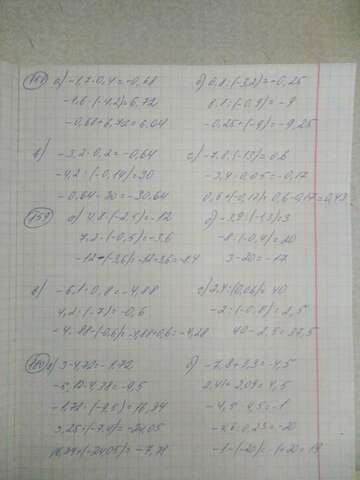 а) -1,7·0,4=-0,68 б) 0,8:(-3,2)=-0,25
-1,6·(-4,2)=6,72 8,1:(-0,9)=-9
-0,68+6,72=6,04 -0,25+(-9)=-9,25
в) -3,2·0,2=-0,64 с) -7,8:(-13)=0,6
-4,2:(-0,14)=30 -3,4·0,05=-0,17
-0,64-30=-30,64 0,6+(-0,17)=0,6-0,17=0,43
159 а) 4,8·(-2,5)=-12 б) -3,9:(-1,3)=3
7,2·(-0,5)=-3,6 -8:(-0,4)=20
-12-(-3,6)=-12+3,6=-8,4 3-20=-17
в) -6,1·0,8=-4,88 с) 2,4:(0,06)=40
4,2:(-7)=-0,6 -2:(-0,8)=2,5
-4,88-(-0,6)=-4,88+0,6=-4,28 40-2,5=37,5
3-4,72=-1,72 б) -7,8+3,3=-4,5
-5,12-4,38=-9,5 2,41+2,09=4,5
-4,5:4,5=-1
3,25·(-7,4)=-24,05 -4,6:0,23=-20
-1-(-20)=-1+20=19